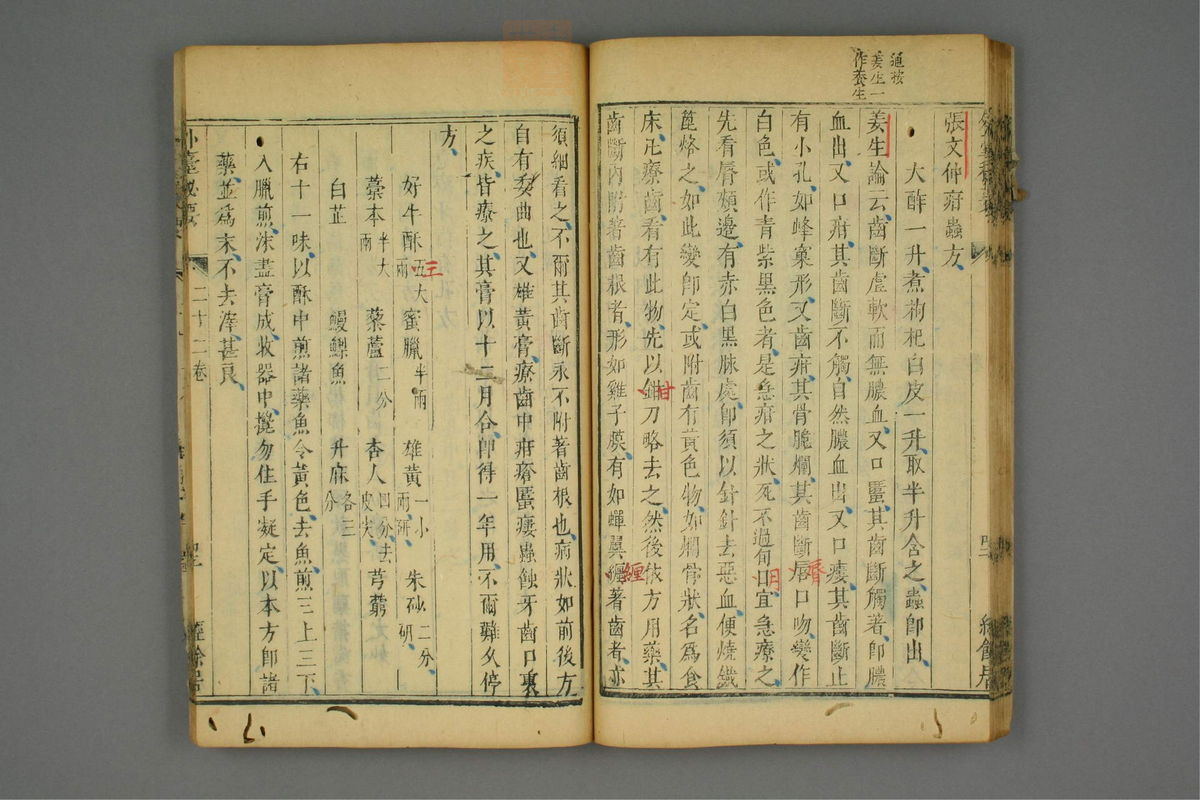 通按
姜生一
作養生
張文仲疳蟲方
大酢一升煮枸杞白皮一升取半升含之蟲即出
姜生論云齒斷虛軟而無膿血又口䘌其齒斷觸著即膿
血出又口疳其齒斷不觸自然膿血出又口瘻其齒斷上
有小孔如蜂窠形又齒疳其骨脆爛其齒斷唇口吻變作
脣
白色或作青紫黑色者是急疳之狀死不過旬口宜急療之
月
先看脣頰邊有赤白黑脉處即須以針針去惡血便燒鐵
篦烙之如此變即定或附齒有黃色物如爛骨狀名爲食
床凡療齒看有此物先以鉗刀略去之然後依方用藥其
甘
齒斷內附著齒根者形如雞子膜有如蟬翼纏著齒者亦
纏
須細看之不爾其齒斷永不附著齒根也病狀如前後方
自有委曲也又雄黃膏療齒中疳瘡䘌瘻蟲蝕牙齒口裏
之疾皆療之其膏以十二月合即得一年用不爾難久停
方
好牛酥五大兩 蜜臘半兩 雄黃一小兩研 朱砂二分研
三
藁本半大兩 藜蘆二分 杏人四分去皮尖 芎藭
白芷 鰻鱺魚 升麻各三分
右十一味以酥中煎諸藥魚令黃色去魚煎三上三下
入臘煎沫盡膏成收器中攪勿住手凝定以本方即諸
藥並爲末不去滓甚良
外臺秘要
二十二卷
經餘居